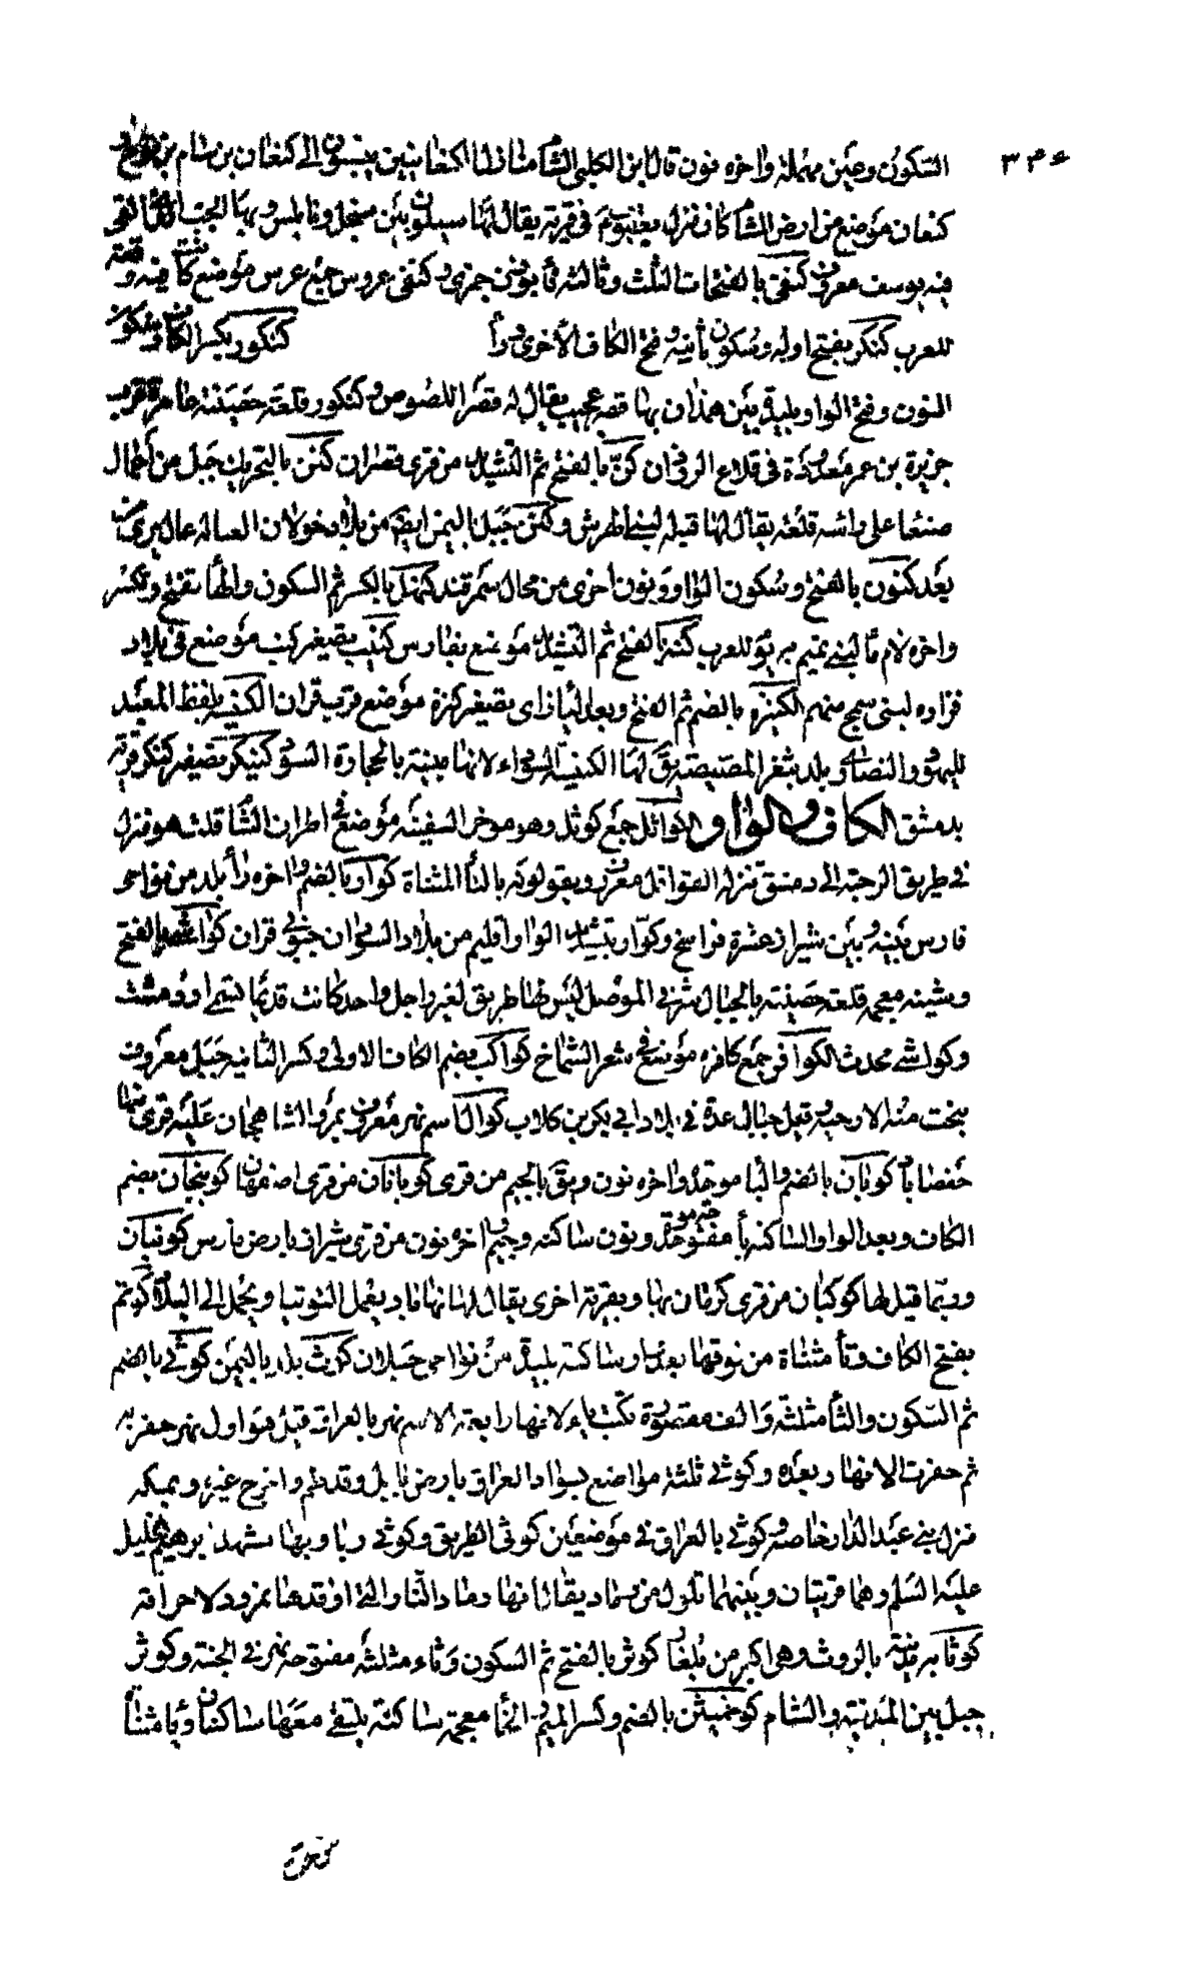 السكون وعين مهملة واخره نون قال ابن الكلبى الشام منازل الكنعانيين ينسبون الى كنعان بن سام بن نوح
كنعان موضع من ارض الشام كان منزل يعقوب م فى قرية يقال لها سيلون بين سنجل ونابلس وبها الجب الذى القى
فيه يوسف معروف كنفى بالفتحات الثلث وثالثه فا يوزن جمزى وكنفى عروس جمع عرس موضع كانت فيه وقعة
للعرب كنكر بفتح اوله وسكون ثانيه وفتح الكاف الاخرى ورا كنكور بكسر الكاف وسكون
النون وفتح الواو بليد بين همذان بها قصر عجيب يقال له قصر اللصوص وكنكور قلعة حصينة عامرة قرب
جزيرة بن عمر معدودة فى قلاع الزوزان كن بالفتح ثم التشديد من قرى قصران كنن بالتحريك جبل من اعمال
صنعا على راسه قلعة يقال لها قيله لبنى الهرش وكنن جبل باليمن ايضا من بلاد خولان العاليه عال يرى من
بعد كنون بالفتح وسكون الواو ونون اخرى من محال سمرقند كنهل بالكسر ثم السكون والهاء تفتح وتكسر
واخره لام ما لبنى تميم به يوم للعرب كنه بالفتح ثم التشديد موضع بفارس كنيب تصغير كنب موضع فى بلاد
فزاره لبنى شمخ منهم الكنيزة بالضم ثم الفتح وبعد اليا زاى تصغير كنزة موضع قرب قران الكنيسه بلفظ المعبد
لليهود والنصارى بلد بثغر المصيصة يق لها الكنيسة السوداء لانها مبنية بالحجارة السود كنيكر تصغير كنكر قرية
بدمشق الكاف والواو الكواثل جمع كوثل وهو موخر السفينه موضع فى اطراف الشام قلت هو منزل
فى طريق الرحبة الى دمشق تنزله القوافل معروف ويقولونه بالتا المثناة كوار بالضم واخره را بلد من نواحى
فارس بينه وبين شيراز عشرة فراسخ وكوار بتشديد الواو اقليم من بلاد السودان جنوبى فزان كواشى بالفتح
وشينه معجمه قلعة حصينة بالجبال شرقى الموصل ليس لها طريق لغير راجل واحد كانت قديما تسمى اردمشت
وكواشى محدث الكوافر جمع كافره موضع فى شعر الشماخ كواكب بضم الكاف الاولى وكسر الثانيه جبل معروف
ينحت منه الارحيه وقيل جبال عدة فى بلاد ابى بكر بن كلاب كوال اسم نهر معروف بمرو الشاهجان عليه قرى منها
حفصاباد كوبان بالضم والبا موحده واخره نون ويق بالجيم من قرى كوبانان من قرى اصفهان كوبنجان بضم
الكاف وبعد الواو الساكنة با مفتوحة موحدة ونون ساكنه وجيم واخره نون من قرى شيراز بارض فارس كوبنيان
وربما قيل لها كوكبان من قرى كرمان بها وبقرية اخرى يقال لها بهاباد يعمل التوتيا ويحمل الى البلاد كوتم
بفتح الكاف وتا مثناة من فوقها بعد واو ساكنة بليد من نواحى جيلان كوث بلد باليمن كوثى بالضم
ثم السكون والثا مثلثة والف مقصورة تكتب ياء لانها رابعة الاسم نهر بالعراق قيل هو اول نهر حفر به
ثم حفرت الانهار بعده وكوثى ثلثة مواضع بسواد العراق بارض بابل وقد طم واخرج غيره وبمكه
منزل بنى عبد الدار خاصة وكوثى بالعراق فى موضعين كوثى الطريق وكوثى ربا وبها مشهد ابرهيم الخليل
عليه السلم وهما قريتان وبينهما تلول من رماد يقال انها رماد النار التى اوقدها نمرود لاحراقه
كوثابه مدينة بالروس وهى اكبر من بلغار كوثر بالفتح ثم السكون وثاء مثلثه مفتوحه نهر فى الجنة وكوثر
جبل بين المدينة والشام كوخميثن بالضم وكسر الميم والخا معجمة ساكنة يلتقى معها ساكنان ويا مثناة